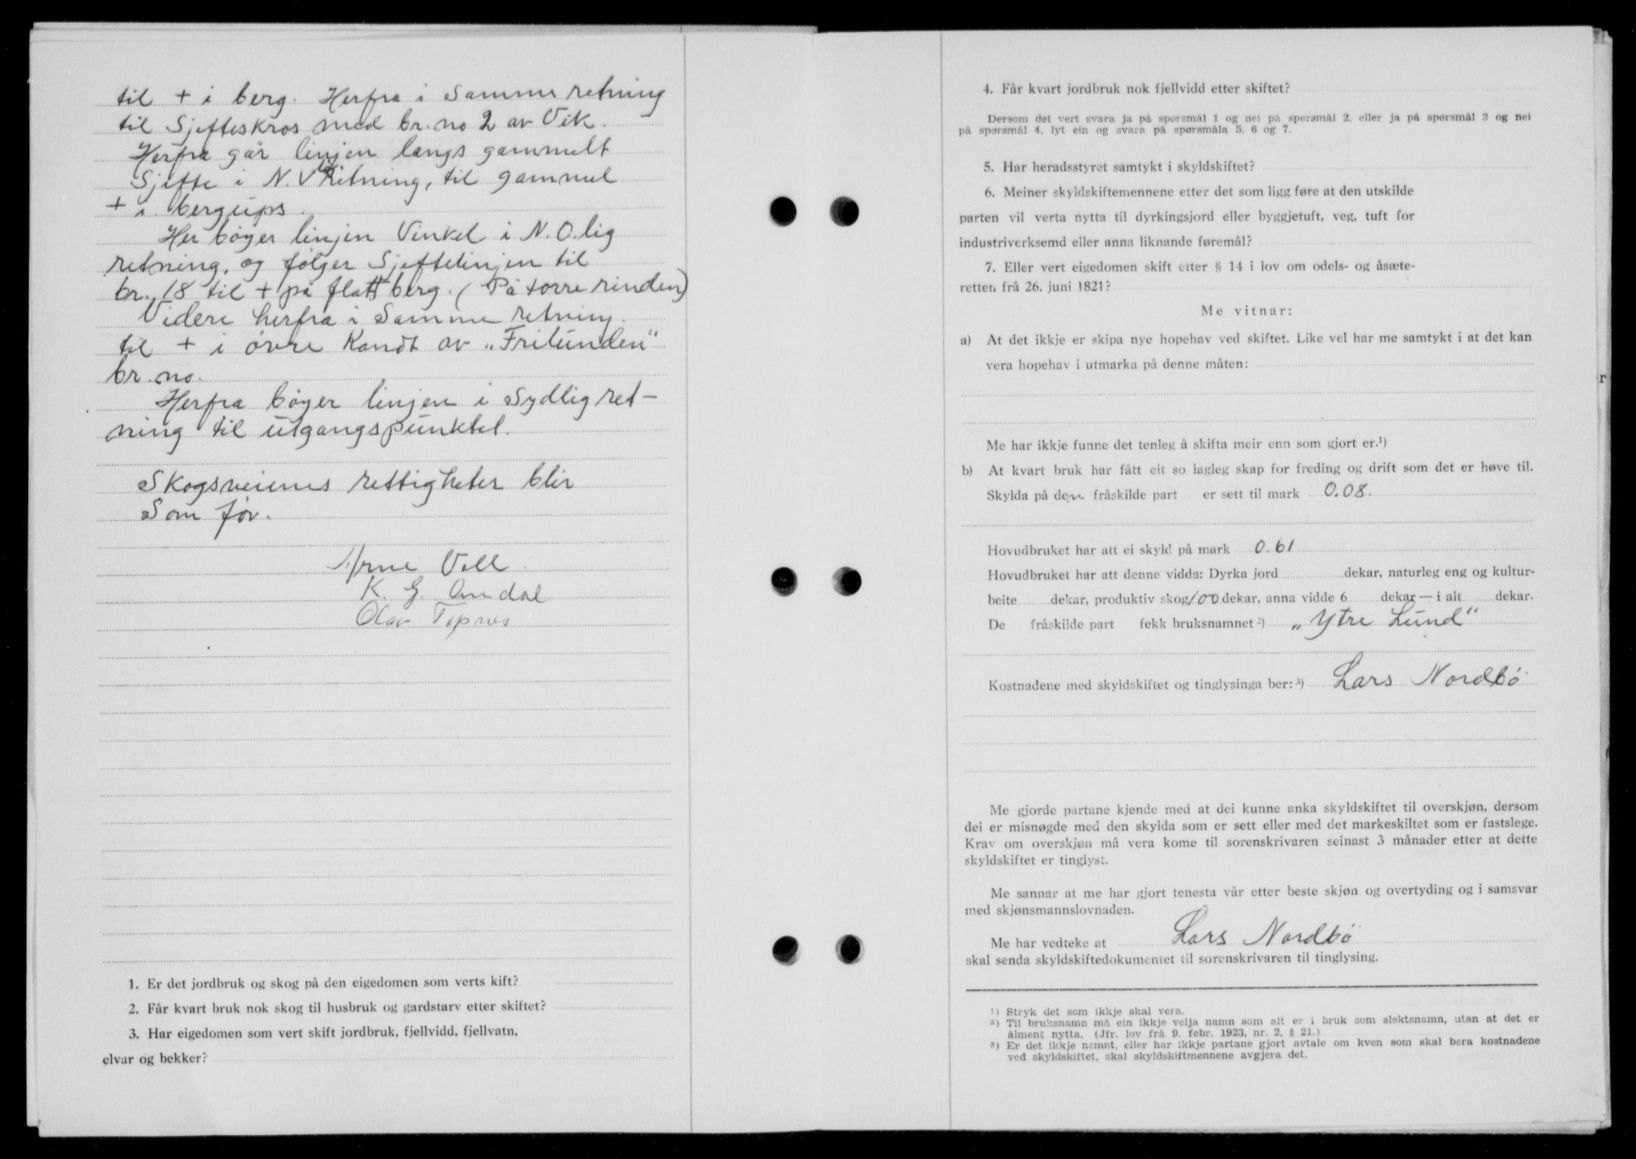 til + i berg. Herfra i samme retning
til Sjefteskros med br. no 2 av Vik.
Herfra går linjen langs gammelt
Sjefte i N.V. lig retning, til gammel
+ i bergups.
Her bøyer linjen Vinkel i N.O. lig
retning, og følger Sjeftelinjen til
br. 18 til + på flatt berg. (På torre rinden)
Videre herfra i samme retning.
til + i øvre Kandt av "Frilunden"
br. no.
Herfra bøyer linjen i Sydlig ret-
ning til utgangspunktet.
Skogsveienes rettigheter blir
Som før.
Arne Vell
K. G. Omdal
Olav Topnes
1. Er det jordbruk og skog på den eigedomen som verts kift?
2. Får kvart bruk nok skog til husbruk og gardstarv etter skiftet?
3. Har eigedomen som vert skift jordbruk, fjellvidd, fjellvatn,
elvar og bekker?
4. Får kvart jordbruk nok fjellvidd etter skiftet?
Dersom det vert svara ja på spørsmål 1 og nei på spørsmål 2, eller ja på spørsmål 3 og nei
på spørsmål 4, lyt ein og svara på spørsmåla 5, 6 og 7.
5. Har heradsstyret samtykt i skyldskiftet?
6. Meiner skyldskiftemennene etter det som ligg føre at den utskilde
parten vil verta nytta til dyrkingsjord eller byggjetuft, veg, tuft for
industriverksemd eller anna liknande føremål?
7. Eller vert eigedomen skift etter § 14 i lov om odels- og åsæte-
retten frå 26. juni 1821?
Me vitnar:
a) At det ikkje er skipa nye hopehav ved skiftet. Like vel har me samtykt i at det kan
vera hopehav i utmarka på denne måten:
Me har ikkje funne det tenleg å skifta meir enn som gjort er.¹)
b) At kvart bruk har fått eit so lagleg skap for freding og drift som det er høve til.
Skylda på den fråskilde part er sett til mark 0.08.
Hovudbruket har att ei skyld på mark 0.61
Hovudbruket har att denne vidda: Dyrka jord dekar, naturleg eng og kultur-
beite dekar, produktiv skog 100 dekar, anna vidde 6 dekar — i alt dekar.
De fråskilde part fekk bruksnamnet ²) "Ytre Lund"
Kostnadene med skyldskiftet og tinglysinga ber: ³) Lars Nordbø
Me gjorde partane kjende med at dei kunne anka skyldskiftet til overskjøn, dersom
dei er misnøgde med den skylda som er sett eller med det markeskiltet som er fastslege.
Krav om overskjøn må vera kome til sorenskrivaren seinast 3 månader etter at dette
skyldskiftet er tinglyst.
Me sannar at me har gjort tenesta vår etter beste skjøn og overtyding og i samsvar
med skjønsmannslovnaden.
Me har vedteke at Lars Nordbø
skal senda skyldskiftedokumentet til sorenskrivaren til tinglysing.
¹) Stryk det som ikkje skal vera.
²) Til bruksnamn må ein ikkje velja namn som alt er i bruk som slektsnamn, utan at det er
ålment nytta. (Jfr. lov frå 9. febr. 1923, nr. 2, § 21.)
³) Er det ikkje nemnt, eller har ikkje partane gjort avtale om kven som skal bera kostnadene
ved skyldskiftet, skal skyldskiftmennene avgjera det.